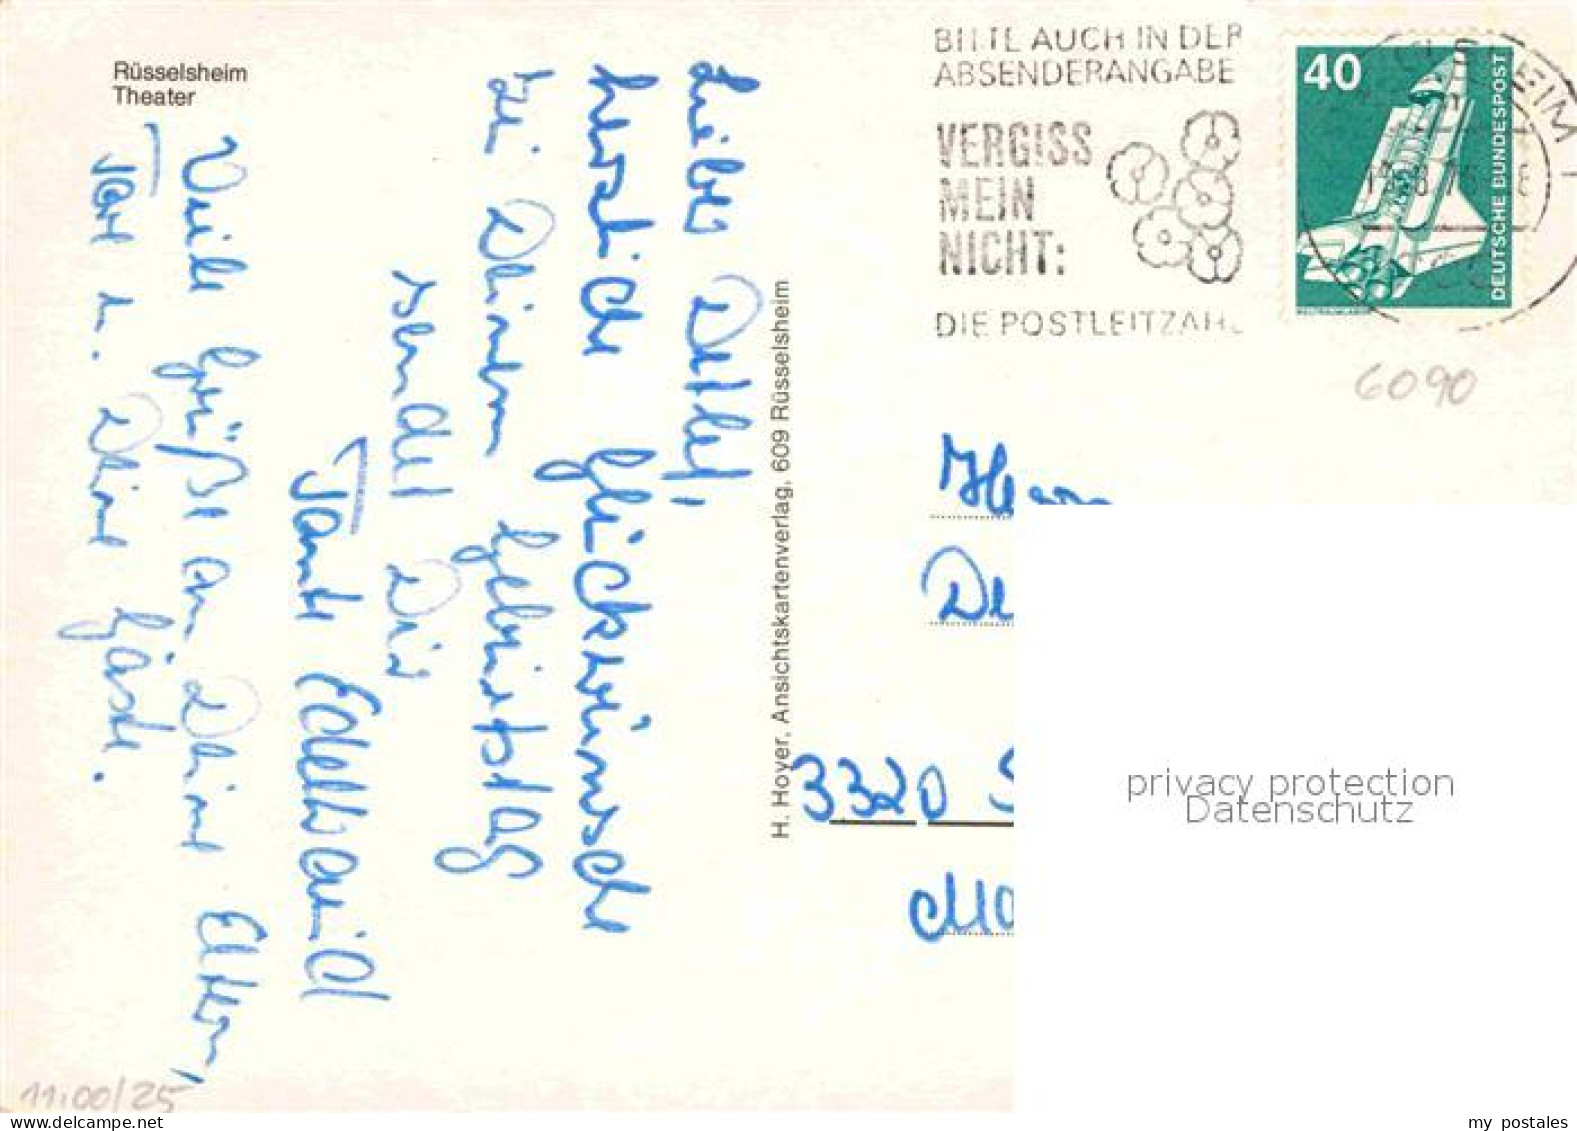 Rüsselsheim
Theater
BITTE AUCH IN DER
ABSENDERANGABE
VERGISS
MEIN
NICHT:
DIE POSTLEITZAHL
40
DEUTSCHE BUNDESPOST
6090
Lieber Detlef,
herzliche Glückwünsche
zu Deinem Geburtstag
sendet Dir
Tante Edeltraud
Viele Grüße an Deine Eltern,
u. Deine Gäste.
H. Hoyer, Ansichtskartenverlag, 609 Rüsselsheim
Herrn
De
3320 S
Ma
privacy protection
Datenschutz
11:00/25
my postales